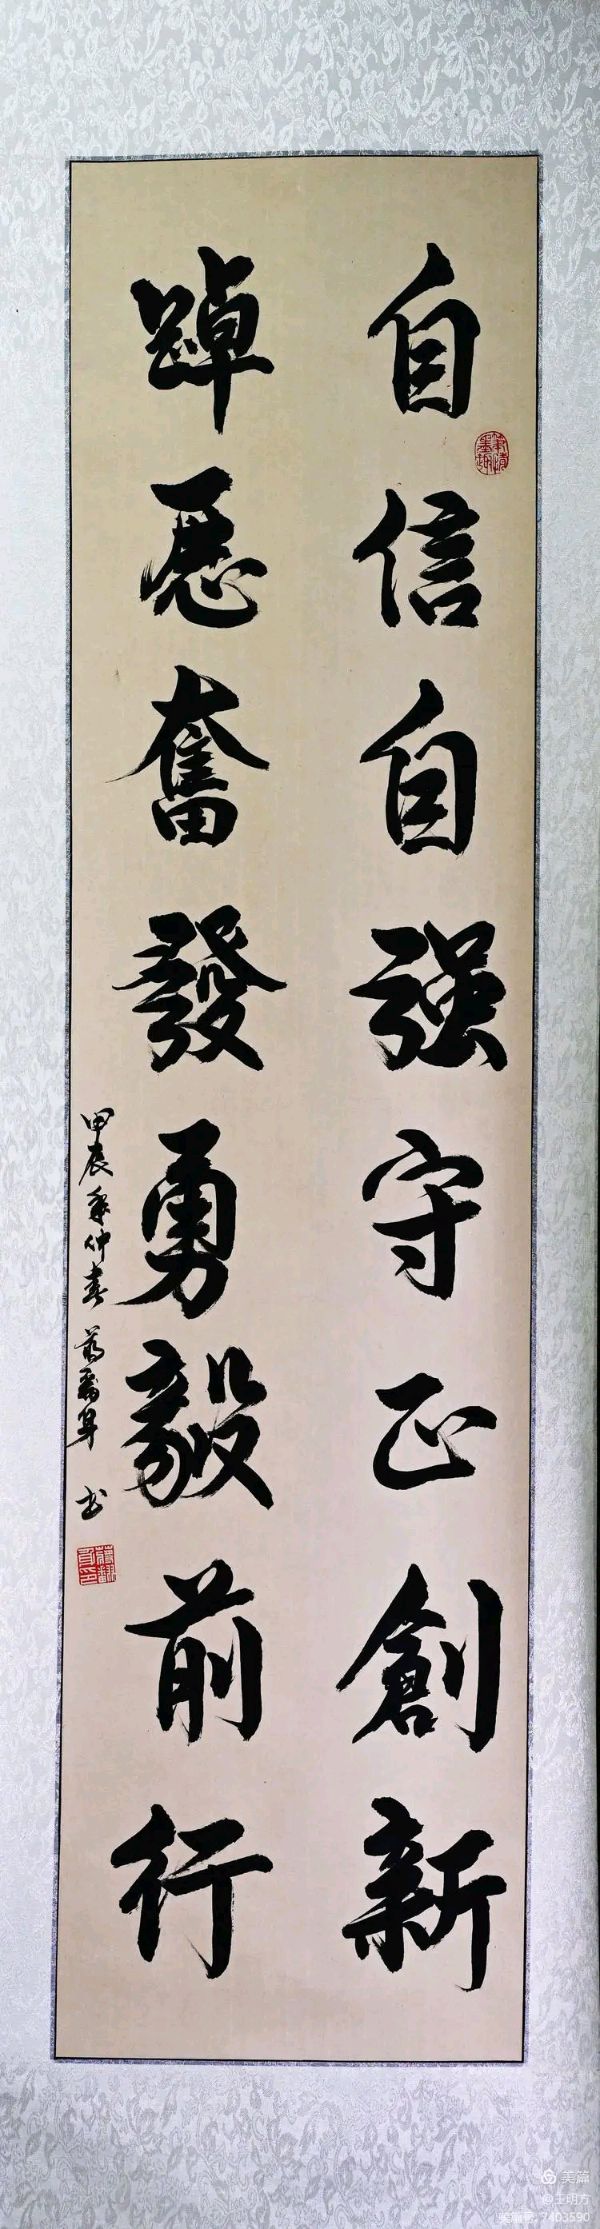 自信自强守正創新
踔厲奮發勇毅前行
甲辰年仲春 書
美篇
@王明方
美篇号:7403590